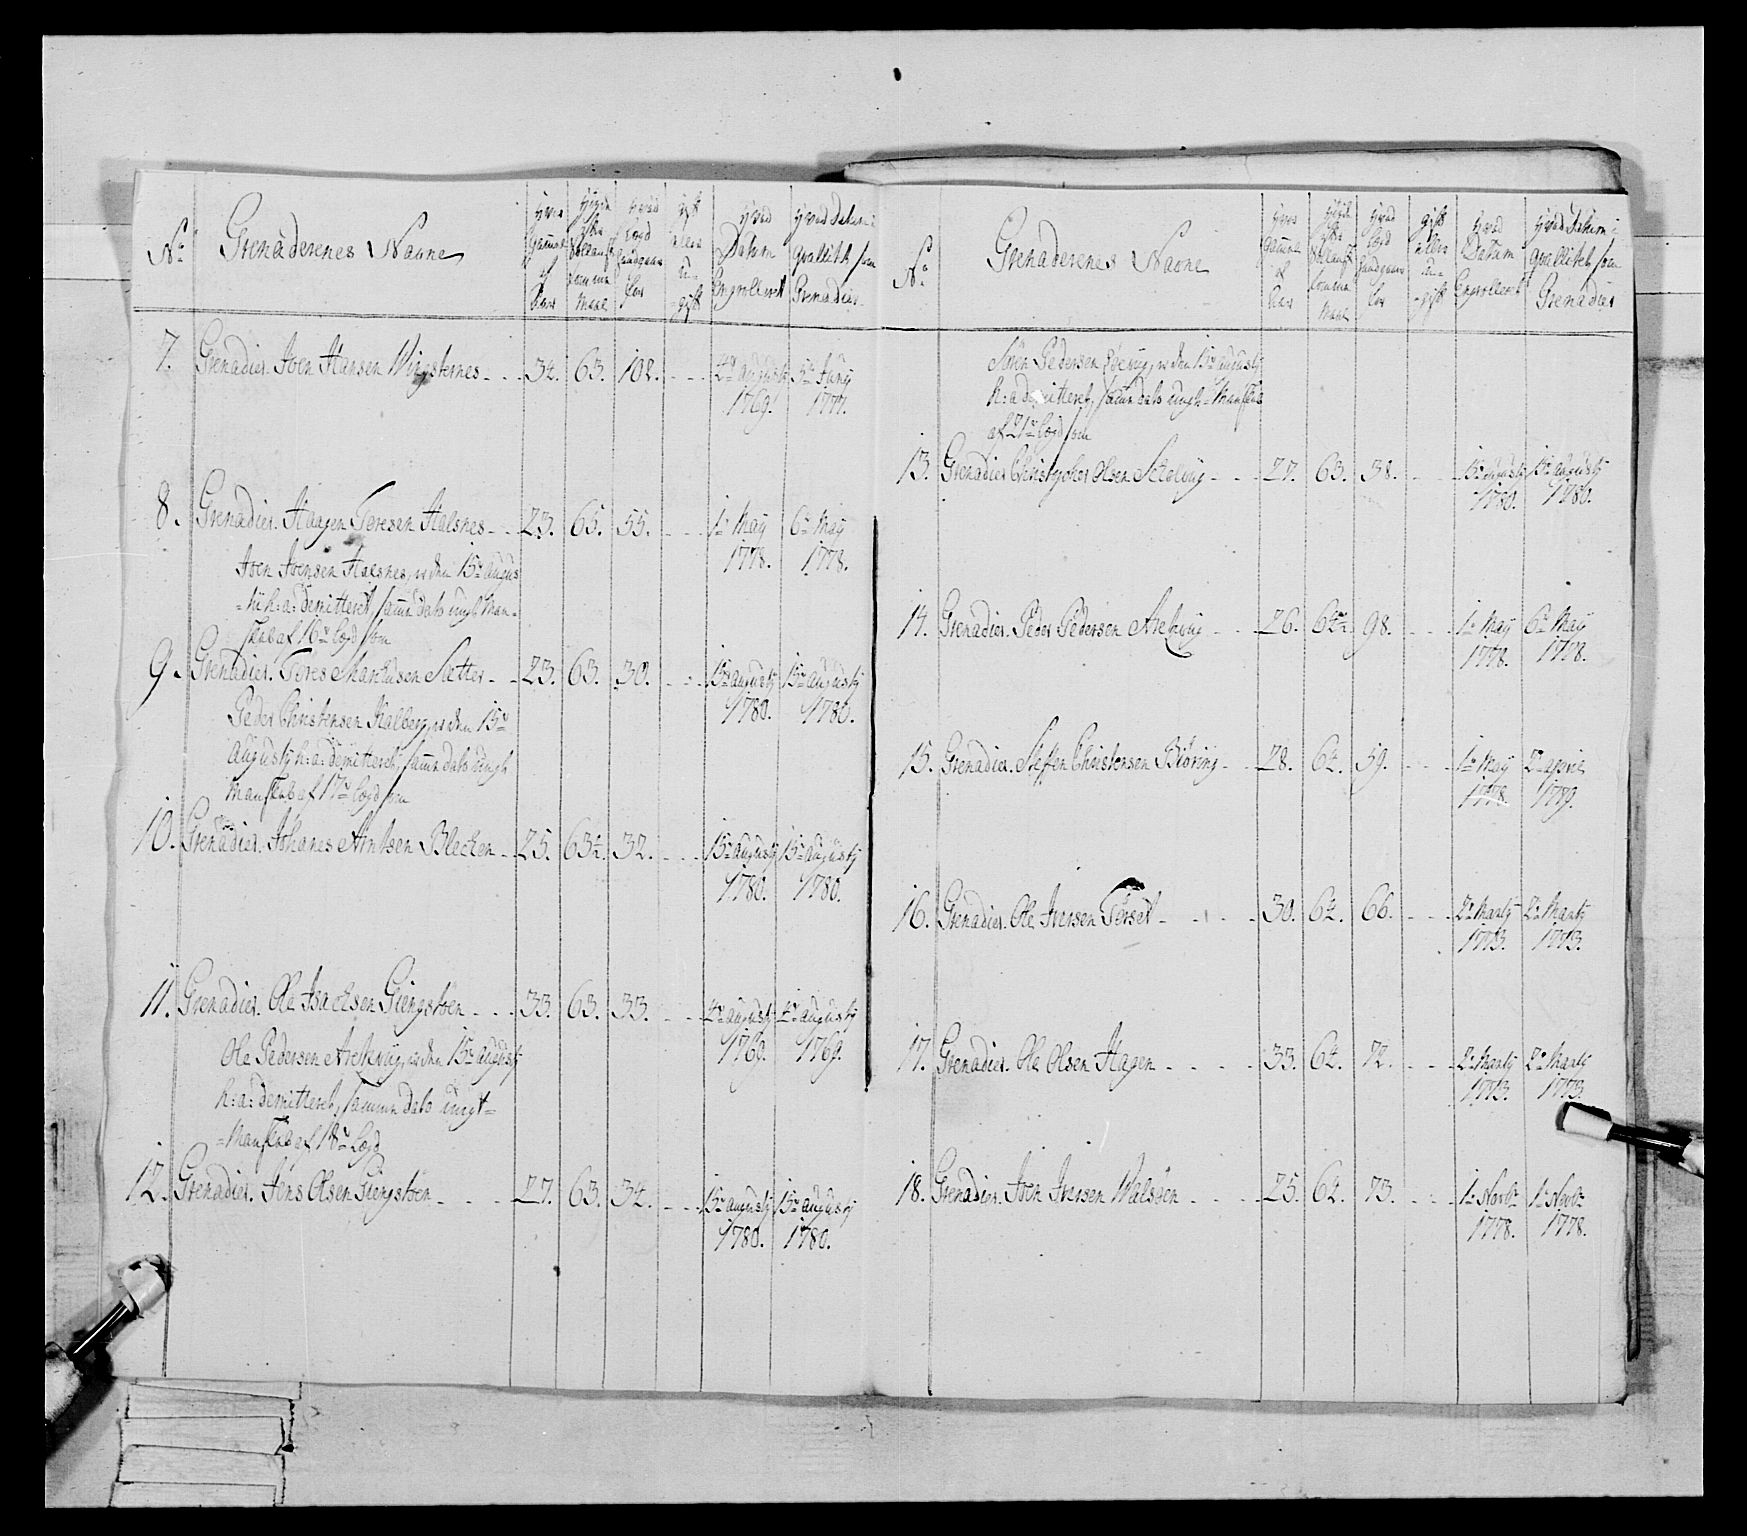 No
Grenaderenes Navne
hvor gammel af Aar
høyde efter Sællandsk tomme Maal
hvad Lægd
gift eller u=gift
hvad Datum Engrolleret
hvad Datum i qvallitet som Grenadier
7. Grenadier. Iven Hansen Wingsternes 34. 63. 102. 4de augusti 1769. 5te Juny 1777.
8. Grenadier. Haagen Toresen Halsnes 23. 65. 55. 1te May 1778. 6te May 1778.
Iven Ivensen Halsnes, er den 15de augus
=ti h: a: demitteret, samme dato ungt Man=
skab af 16de Lægd som
9. Grenadier. Tores Markusen Sætter 23. 63. 30. 15de augusty 1780. 15de augusty 1780.
Peder Christensen Kalberg, er den 15de
augusty h: a: demitteret, samme dato ungt
Manskab af 17de Lægd som
10. Grenadier. Johanes Arntsen Blecken 25. 63½. 32. 15de augusty 1780. 15de augusty 1780.
11. Grenadier. Ole Isachsen Giengstøen 33. 63. 33. 4de augusty 1769. 4de augusty 1769.
Ole Pedersen Arekvig, er den 15de augusty
h: a: demitteret, samme dato ungt=
=Manskab af 18de Lægd
12. Grenadier. Jens Olsen Giengstøen 27. 63. 34. 15de augusty 1780. 15de augusty 1780.
No
Grenaderenes Navne
hvor gammel af Aar
høyde efter Sællandsk tomme Maal
hvad Lægd
gift eller u=gift
hvad Datum Engrolleret
hvad Datum i qvallitet som Grenadier
Søren Pedersen, er den 15de augusty
h: a demitteret, samme dato ungt Manskab
af 21de Lægd som
13. Grenadier Christopher Olsen 27. 63. 38. 15de augusty 1780. 15de augusty 1780.
14. Grenadier. Peder Pedersen Arekvig 26. 64½ 98. 1te May 1778. 6te May 1778.
15. Grenadier. Steffen Christensen Biøring 28. 64. 59. 1te May 1778. 2de aprill 1779.
16. Grenadier. Ole Iversen Tørset 30. 64. 66. 2de Marty 1773. 2de Marty 1773.
17. Grenadier. Ole Olsen Hagen 33. 64. 72. 2de Marty 1773. 2de Marty 1773.
18. Grenadier. Iven Iversen Walsøen 25. 64. 73. 1te Novbr 1778. 1te Novbr 1778.